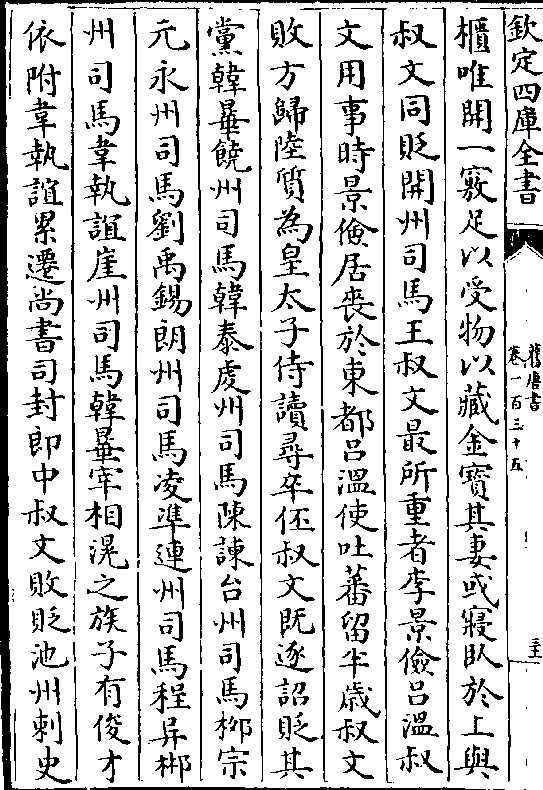 欽定四庫全書
舊唐書
卷一百三十五
櫃唯開一竅足以受物以藏金寶其妻或寢臥於上與
叔文同貶開州司馬王叔文最所重者李景儉呂溫叔
文用事時景儉居喪於東都呂溫使吐蕃留半歲叔文
敗方歸陸質為皇太子侍讀尋卒伾叔文既逐詔貶其
黨韓曅饒州司馬韓泰虔州司馬陳諫台州司馬栁宗
元永州司馬劉禹錫朗州司馬凌凖連州司馬程异郴
州司馬韋執誼崖州司馬韓曅宰相滉之族子有俊才
依附韋執誼累遷尚書司封郎中叔文敗貶池州刺史